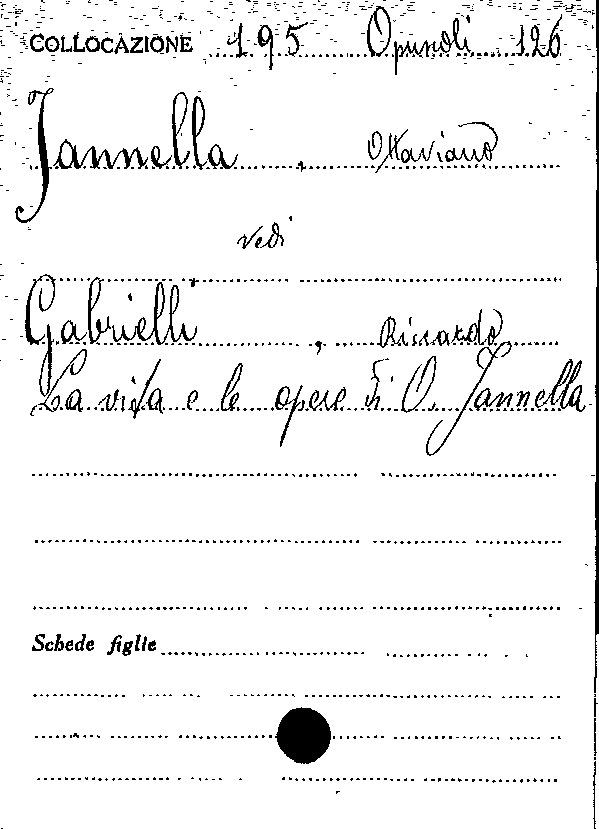 COLLOCAZIONE 195 Opuscoli 126
Jannella, Ottaviano
vedi
Gabrielli, Riccardo
La vita e le opere di O. Jannella
Schede figlie